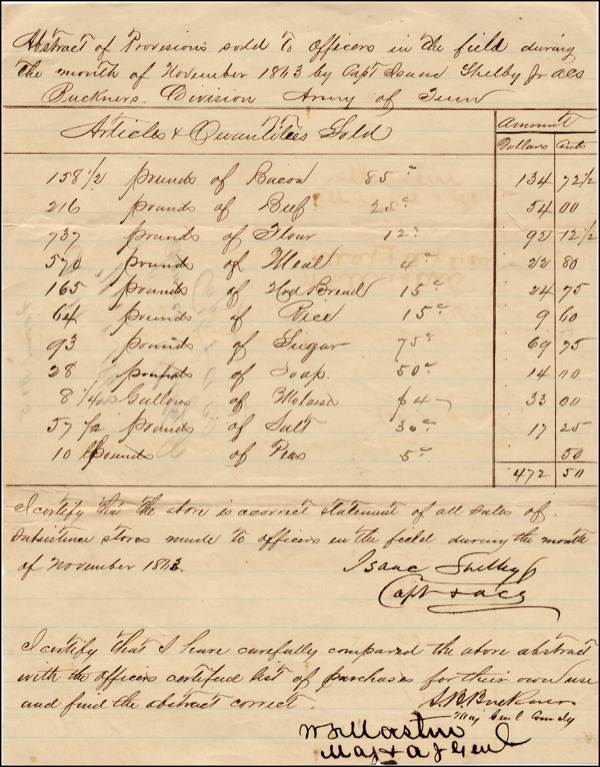 Abstract of Provisions sold to officers in the field during
the month of November 1863 by Capt Isaac Shelby Jr acs
Buckners. Division Army of Tenn
Articles & Quantities Sold
Amount
Dollars Cents
158 1/2 pounds of Bacon 85c 134 72 1/2
216 pounds of Beef 25c 54 00
737 pounds of Flour 12 1/2 92 12 1/2
570 pounds of Meal 4c 22 80
165 pounds of Hrd Bread 15c 24 75
64 pounds of Rice 15c 9 60
93 pounds of Sugar 75c 69 75
28 pounds of Soap. 50c 14 00
8 1/4 Gallons of Molasses $4 33 00
57 1/2 pounds of Salt 30c 17 25
10 Pounds of Peas 5c 50
472 50
I certify that the above is a correct statement of all sales of
subsistence stores made to officers in the field during the month
of November 1863.
Isaac Shelby Jr
Capt & acs
I certify that I have carefully compared the above abstract
with the officers certified list of purchases for their own use
and find the abstract correct.
S. B. Buckner
Maj Genl Comdg
Maj & A J Genl